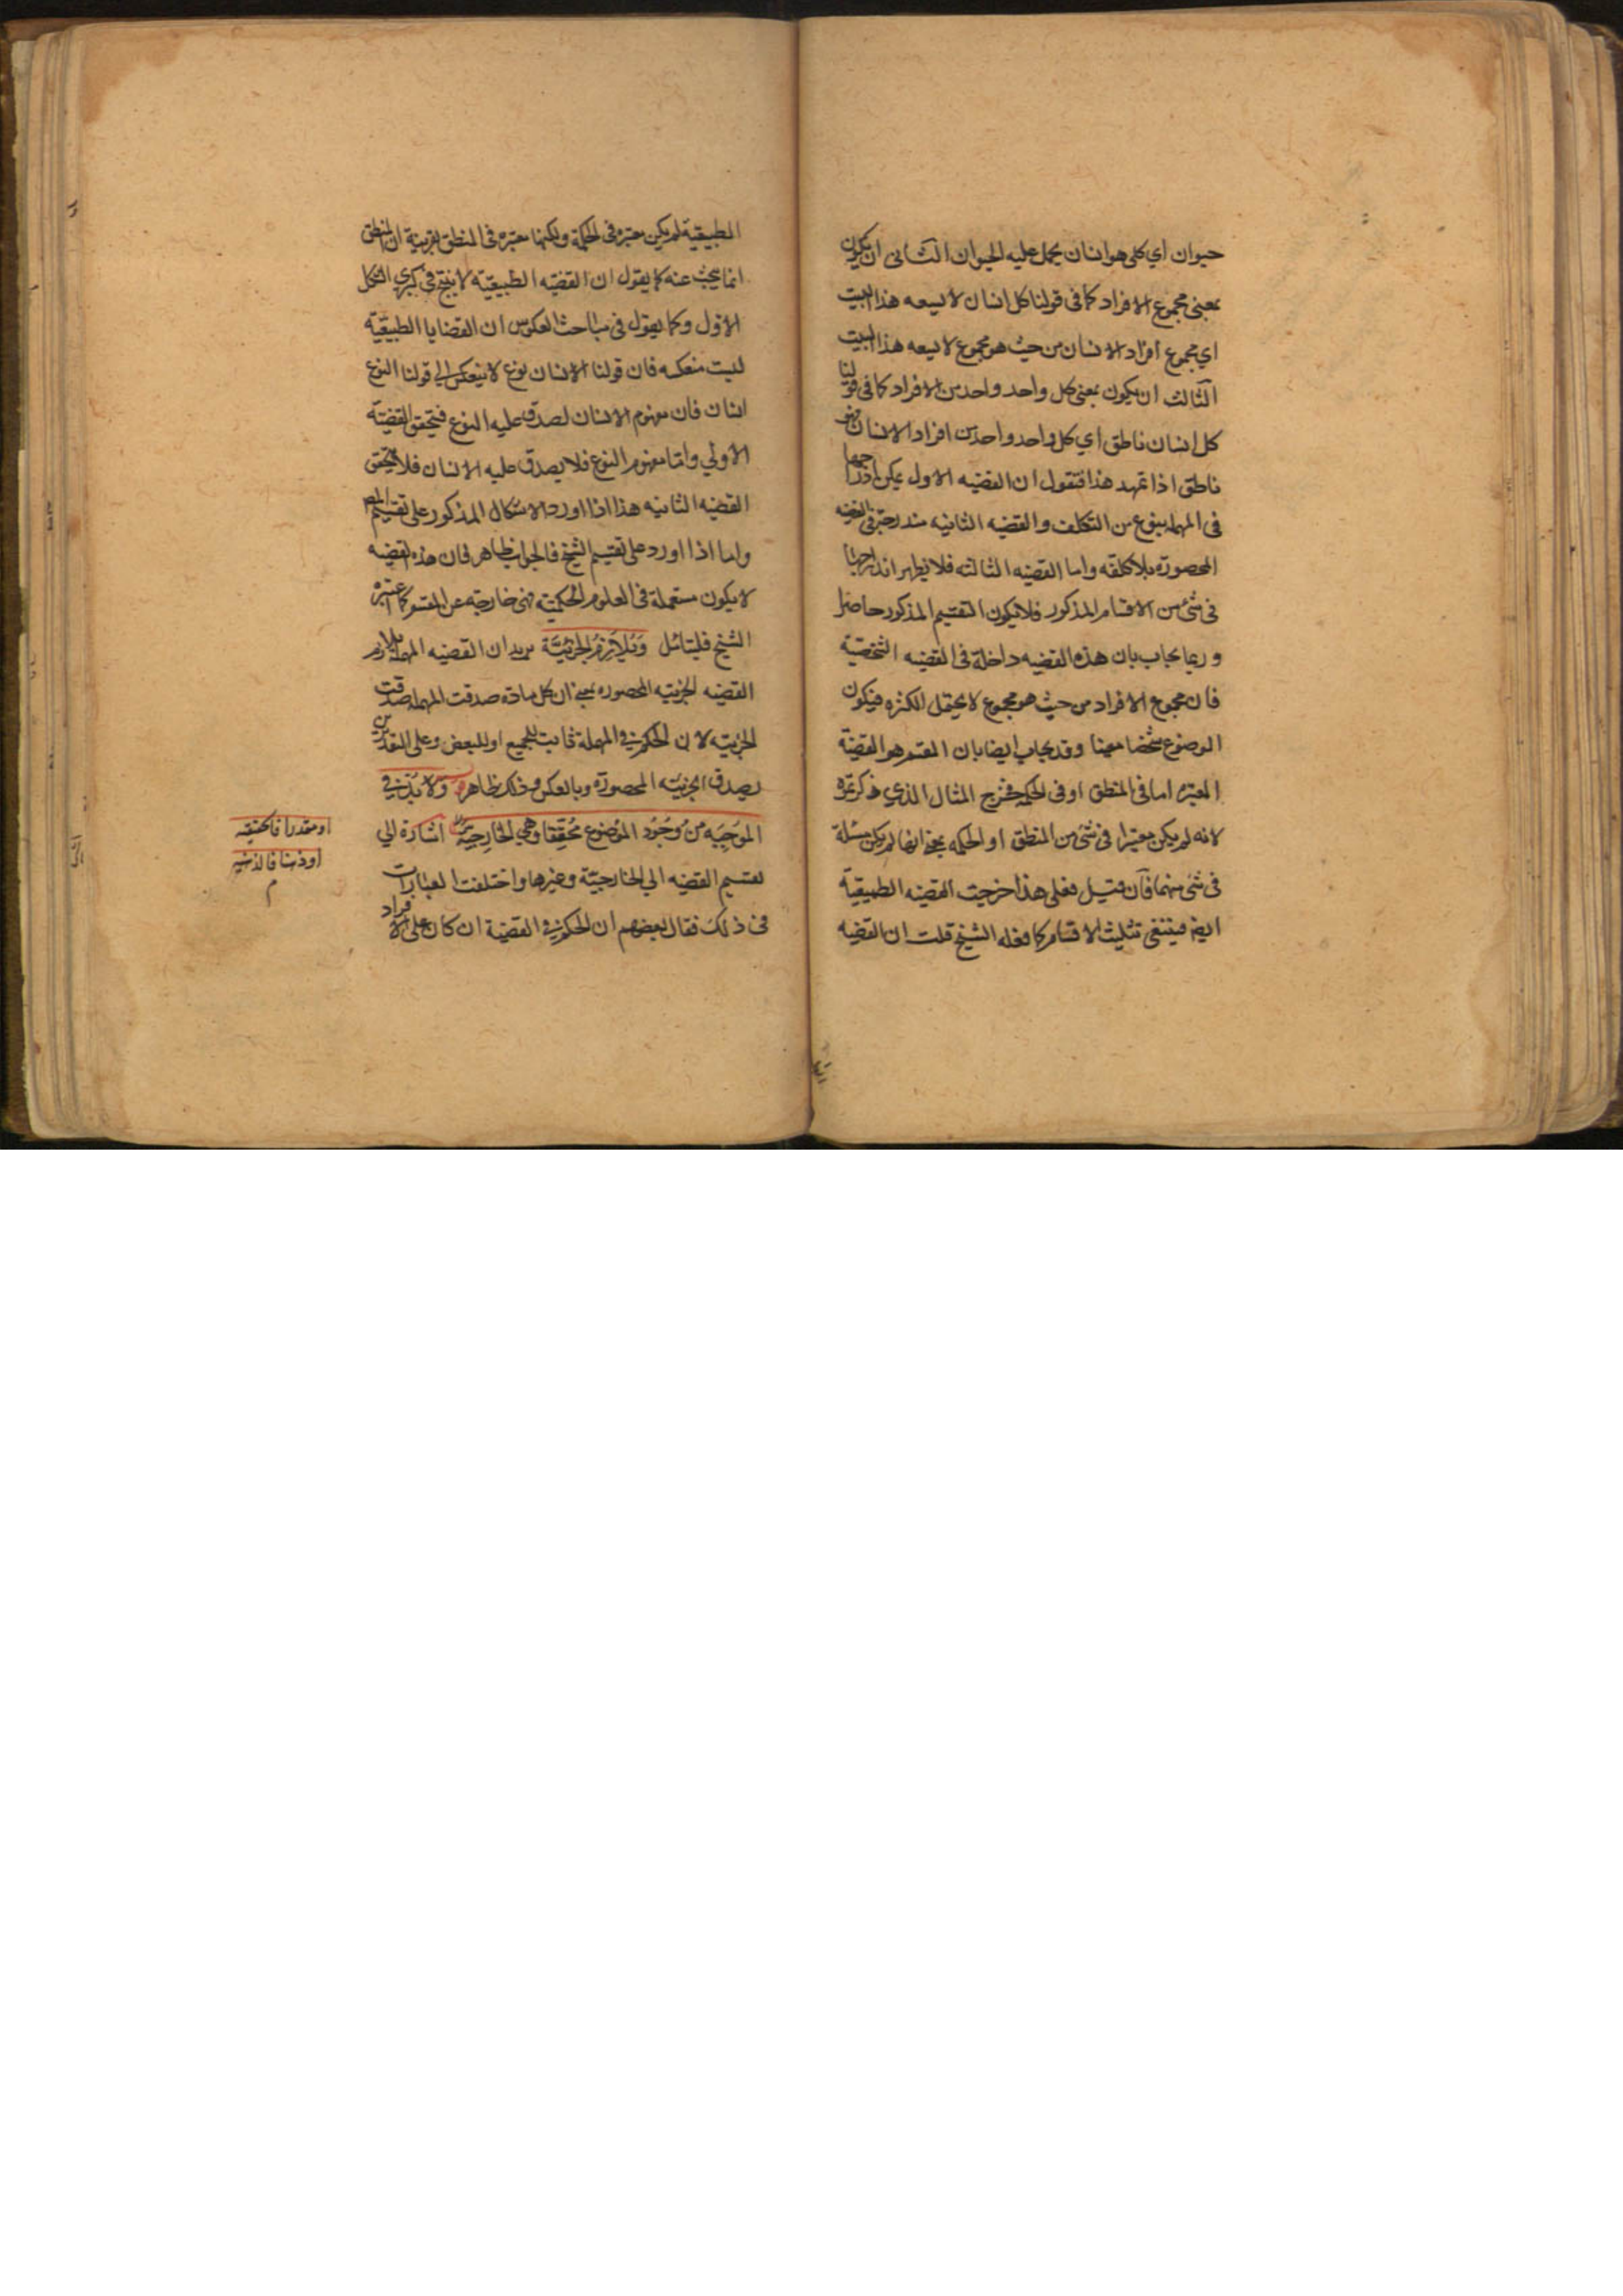 حيوان اي كلي هو انسان يحمل عليه الحيوان الثاني ان يكون
بمعنى مجموع الافراد كما في قولنا كل انسان لا يسعه هذا البيت
اي مجموع افراد الانسان من حيث هو مجموع لا يسعه هذا البيت
الثالث ان يكون بمعنى كل واحد واحد من الافراد كما في قولنا
كل انسان ناطق اي كل واحد واحد من افراد الانسان فهو
ناطق اذا تمهد هذا فنقول ان القضيه الاول يمكن ادراجها
في المهملة بنوع من التكلف والقضيه الثانيه مندرجة في القضيه
المحصورة بلا كلفه واما القضيه الثالثه فلا يظهر اندراجها
في شئ من الاقسام المذكور فلا يكون التقسيم المذكور حاصرا
وربما يجاب بان هذه القضيه داخلة في القضيه الشخصية
فان مجموع الافراد من حيث هو مجموع لا يحتمل الكثره فيكون
الموضوع شخصا معينا وقد يجاب ايضا بان المقسم هو القضية
المعتبره اما في المنطق او في الحكمه فخرج المثال الذي ذكرتموه
لانه لم يكن معتبرا في شئ من المنطق او الحكمه بمعنى انها لم يكن مسئلة
في شئ منهما فان قيل فعلى هذا خرجت القضيه الطبيعية
ايضا فينتفي تثليث الاقسام كما فعله الشيخ قلت ان القضيه
الطبيعية لم يكن معتبره في الحكمة ولكنها معتبره في المنطق بقرينة ان المنطق
انما يبحث عنه كما يقول ان القضيه الطبيعية لا ينتج في كبرى الشكل
الاول وكما يقول في مباحث العكوس ان القضايا الطبيعية
ليست منعكسه فان قولنا الانسان نوع لا ينعكس الي قولنا النوع
انسان فان مفهوم الانسان لصدق عليه النوع فيتحقق القضية
الاولي واما مفهوم النوع فلا يصدق عليه الانسان فلا يتحقق
القضيه الثانيه هذا اذا اورد الاشكال المذكور على تقسيم المص
واما اذا اورد على تقسيم الشيخ فالجواب ظاهر فان هذه القضيه
لا يكون مستعملة في العلوم الحكمية فهي خارجه عن المقسم كما اعتبره
الشيخ فليتامل وَتُلازِمُ الجزئيَّة يريد ان القضيه المهملة يلازم
القضيه الجزئيه المحصوره بمعنى ان كل مادة صدقت المهملة صدقت
الجزئيه لان الحكم في المهملة ثابت للجميع او للبعض وعلى التقديرين
يصدق الجزئيّه المحصورة وبالعكس وذلك ظاهر وَلا بُدَّ في
الموَجِبَه مِنْ وُجُودِ الموُضوع مُحَقَّقا وَهي الخارجِيّة اشارة الي
تقسيم القضيه الي الخارجيّة وغيرها واختلفت العبارات
في ذلك فقال بعضهم ان الحكم في القضية ان كان على الافراد
او مقدرا فالحقيقيه
او ذهنا فالذهنيه
م